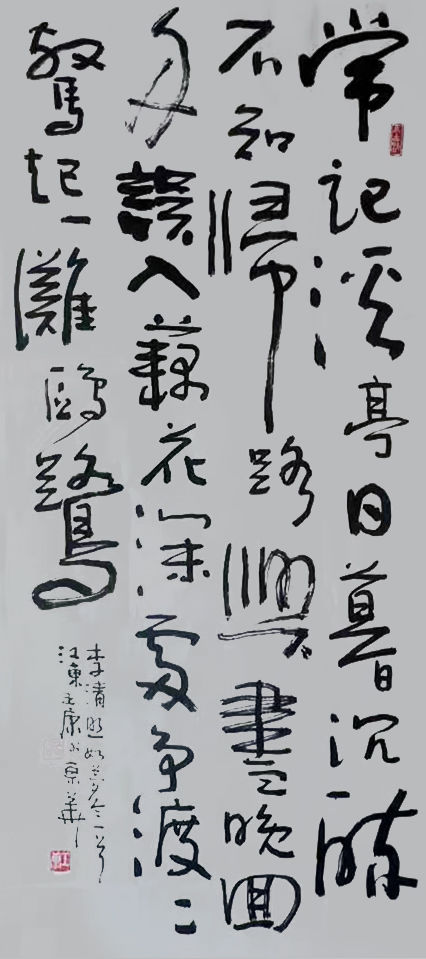 常記溪亭日暮沉醉
不知歸路興盡晚回
舟誤入藕花深處争渡二
驚起一灘鷗鷺
李清照如夢令一首
江東康京華